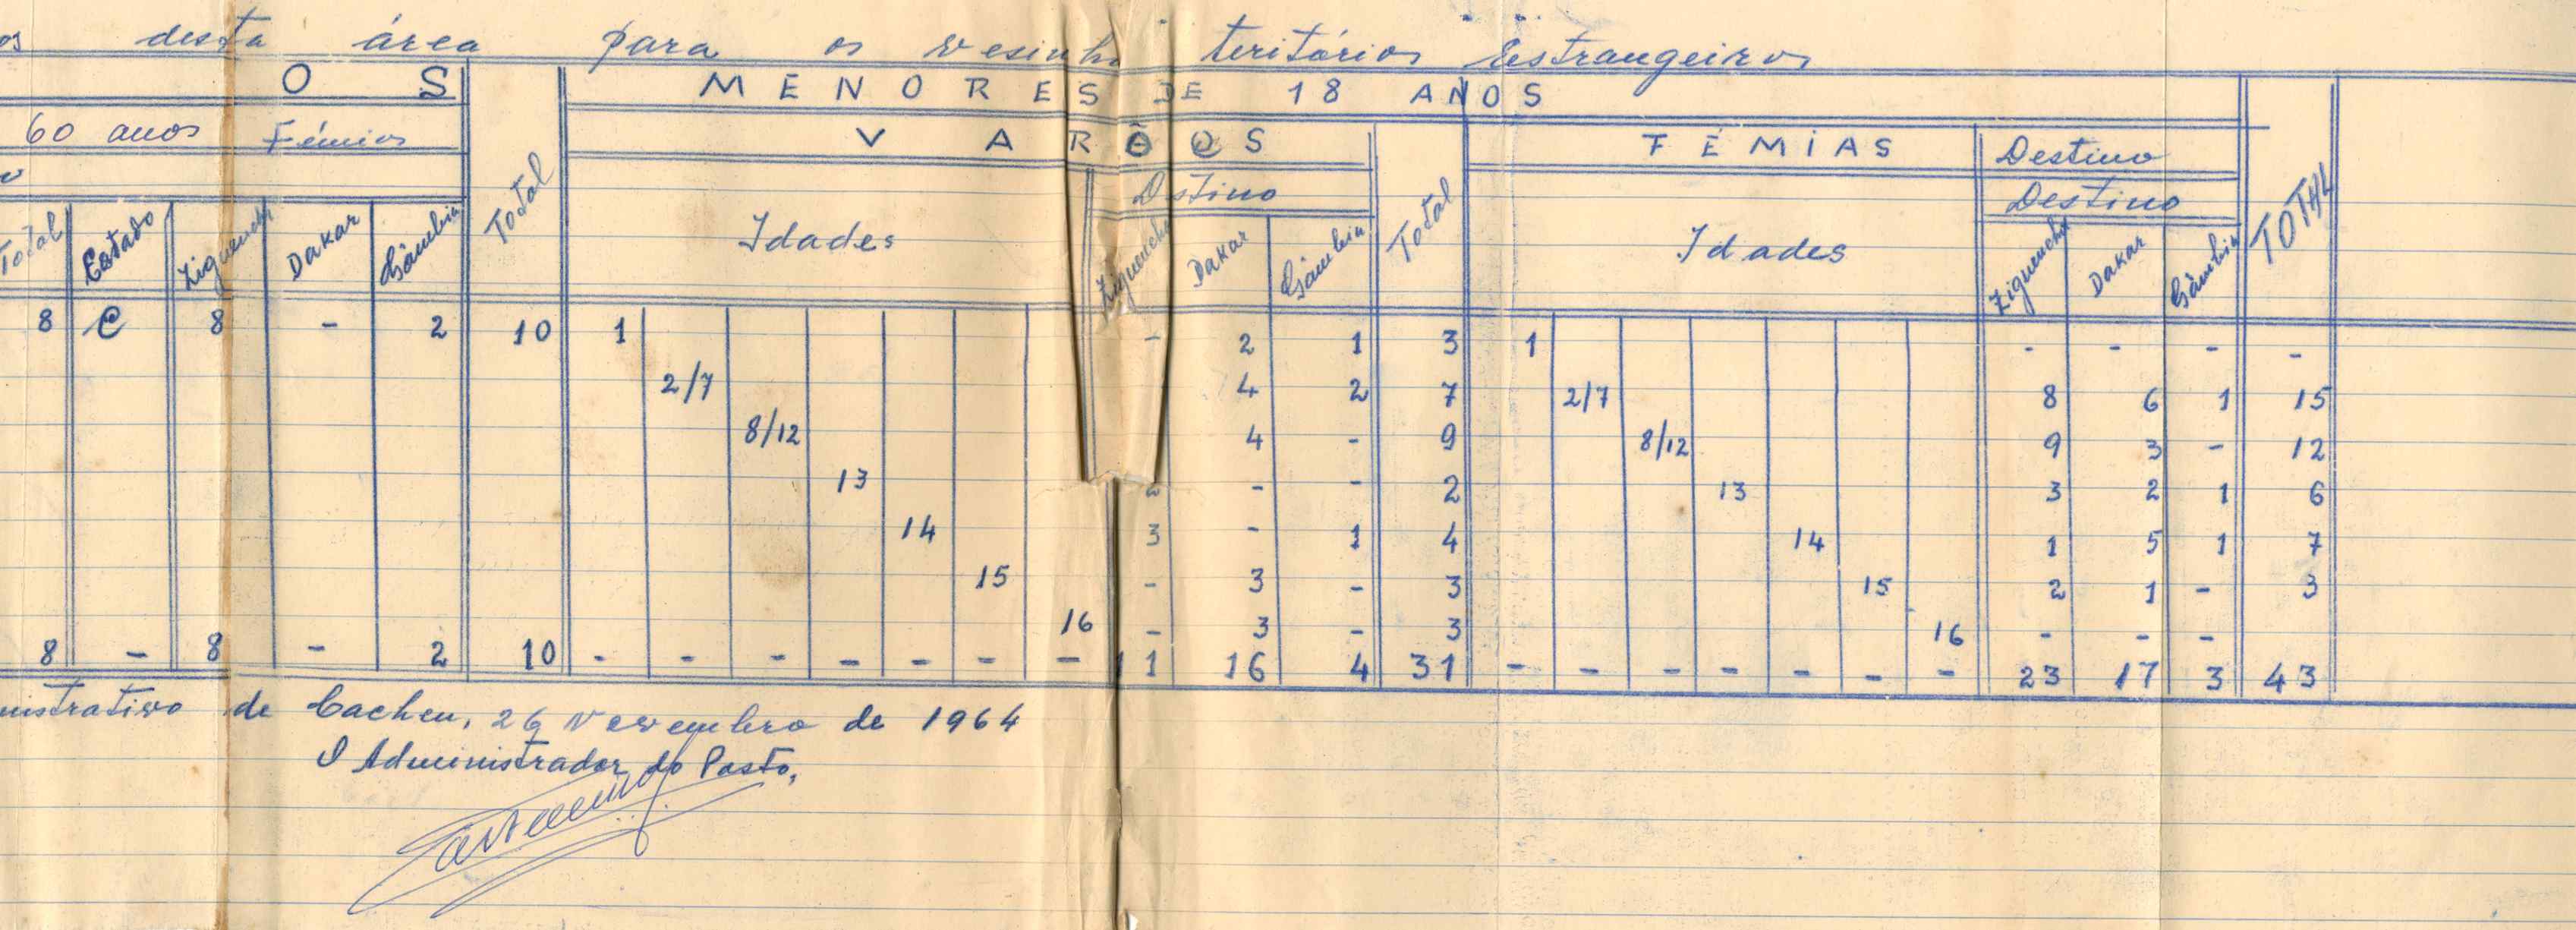 os desta área para os vesinho teritórios estrangeiros
O S MENORES DE 18 ANOS
60 anos Fémios VARÕOS TÉMIAS Destino
Total Destino Total Destino TOTAL
Total Estado Ziguenchr Dakar Gâmbia Idades Ziguenchr Dakar Gâmbia Idades Ziguenchr Dakar Gâmbia
8 C 8 - 2 10 1 - 2 1 3 1 - - - -
2/7 4 2 7 2/7 8 6 1 15
8/12 4 - 9 8/12 9 3 - 12
13 2 - - 2 13 3 2 1 6
14 3 - 1 4 14 1 5 1 7
15 - 3 - 3 15 2 1 - 3
16 - 3 - 3 16 - - -
8 - 8 - 2 10 - - - - - - - 11 16 4 31 - - - - - - - 23 17 3 43
nistrativo de Cacheu, 26 Novembro de 1964
O Administrador do Posto,